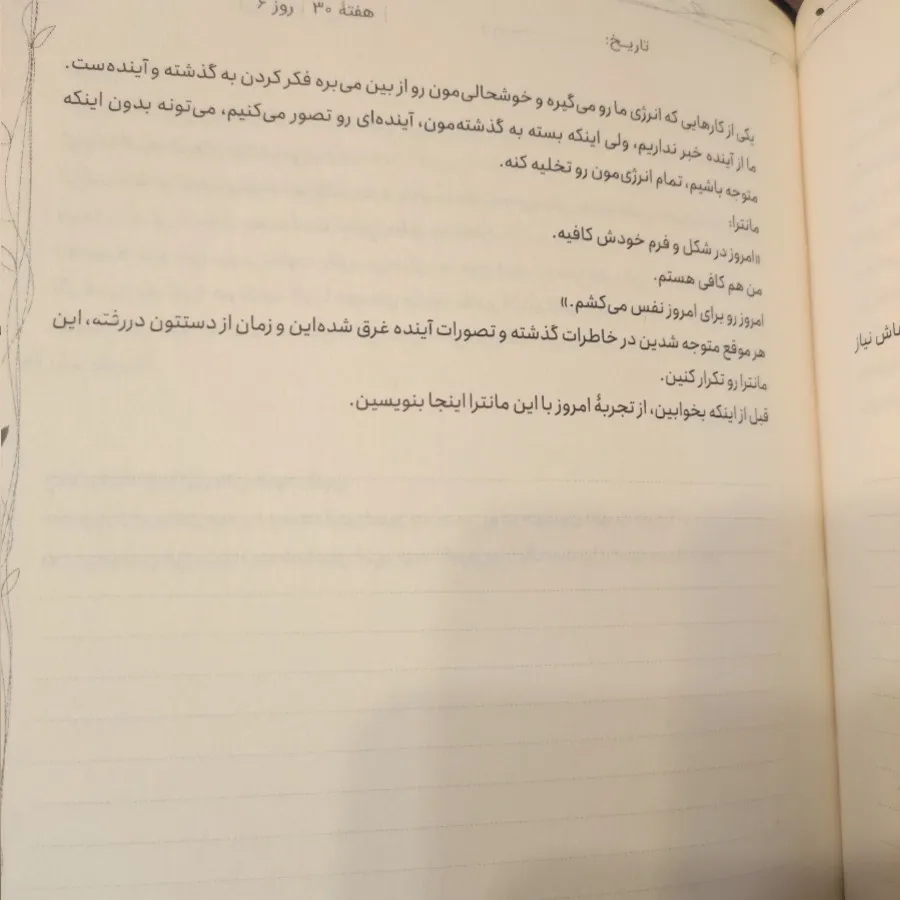 هفتهٔ ۳۰ | روز ۶
تاریخ:
یکی از کارهایی که انرژی ما رو می‌گیره و خوشحالی‌مون رو از بین می‌بره فکر کردن به گذشته و آینده‌ست.
ما از آینده خبر نداریم، ولی اینکه بسته به گذشته‌مون، آینده‌ای رو تصور می‌کنیم، می‌تونه بدون اینکه
متوجه باشیم، تمام انرژی‌مون رو تخلیه کنه.
مانترا:
«امروز در شکل و فرم خودش کافیه.
من هم کافی هستم.
امروز رو برای امروز نفس می‌کشم.»
هر موقع متوجه شدین در خاطرات گذشته و تصورات آینده غرق شده‌این و زمان از دستتون دررفته، این
مانترا رو تکرار کنین.
قبل از اینکه بخوابین، از تجربهٔ امروز با این مانترا اینجا بنویسین.
نیاز